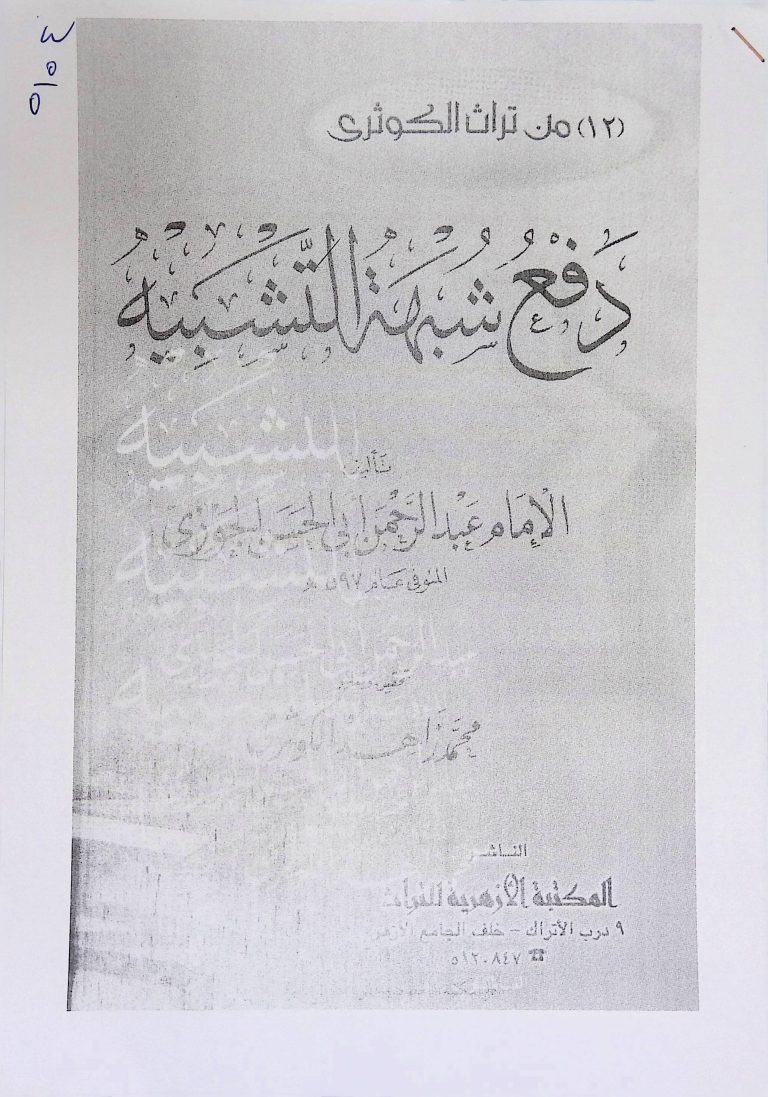 (١٢) من تراث الكوثرى
دَفْعُ شُبْهَةِ التَّشْبِيْهِ
تأليف
الإمَام عَبْدالرَّحْمٰن أبى الحَسَن الجَوْزى
المتوفى عام ٥٩٧ هـ
محمد زاهد الكوثرى
الناشر
المكتبة الأزهرية للتراث
٩ درب الأتراك - خلف الجامع الأزهر
☎ ٥١٢٠٨٤٧